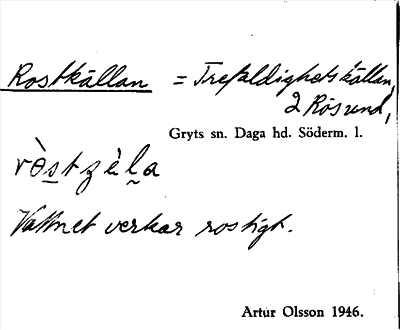 Rostkällan = Trefaldighetskällan,
2 Rösund,
Gryts sn. Daga hd. Söderm. l.
Vattnet verkar rostigt.
Artur Olsson 1946.